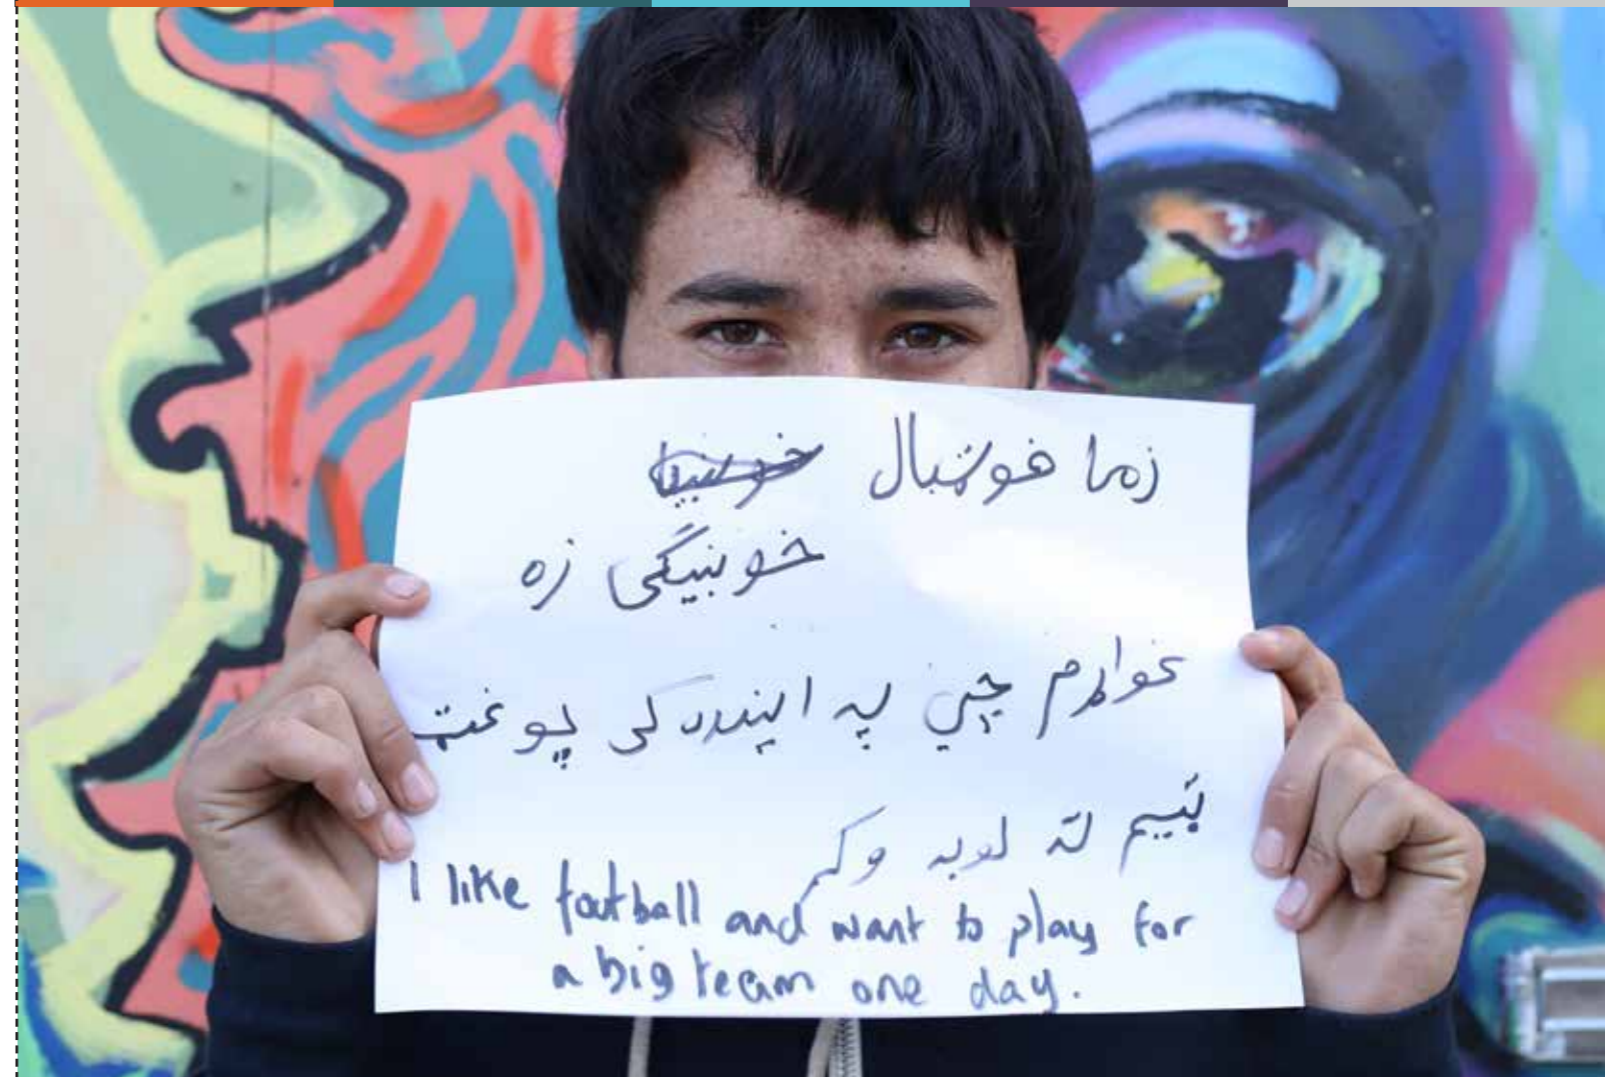 زما فوټبال
خوښیگی زه
غواړم چي په اینده کی یو غټ
ټیم لته لوبه وکم
I like football and want to play for
a big team one day.